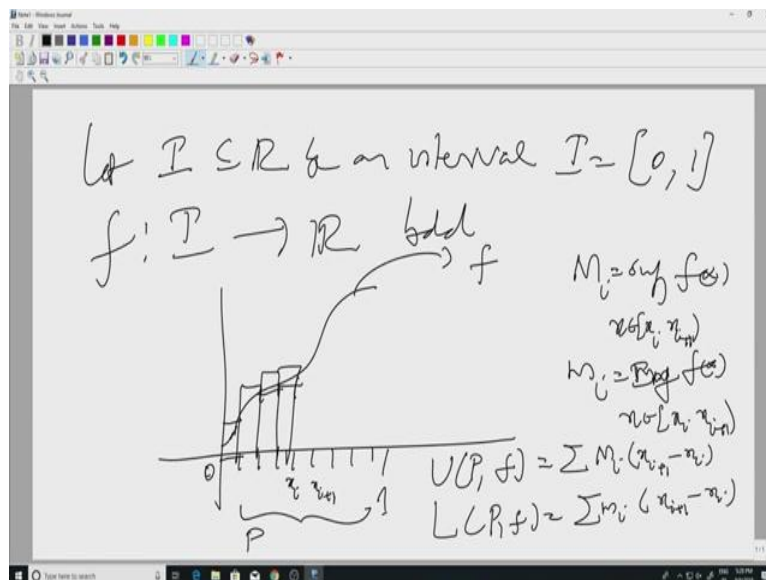 Note1 - Windows Journal
File Edit View Insert Actions Tools Help
Let I ⊆ R be an interval I = [0, 1]
f : I → R bdd
f
M_i = sup f(x)
x∈[x_i, x_{i+1})
m_i = inf f(x)
x∈[x_i, x_{i+1})
0 x_i x_{i+1} 1
P
U(P, f) = Σ M_i (x_{i+1} - x_i)
L(P, f) = Σ m_i (x_{i+1} - x_i)
1/1
Type here to search
ENG 5:28 PM